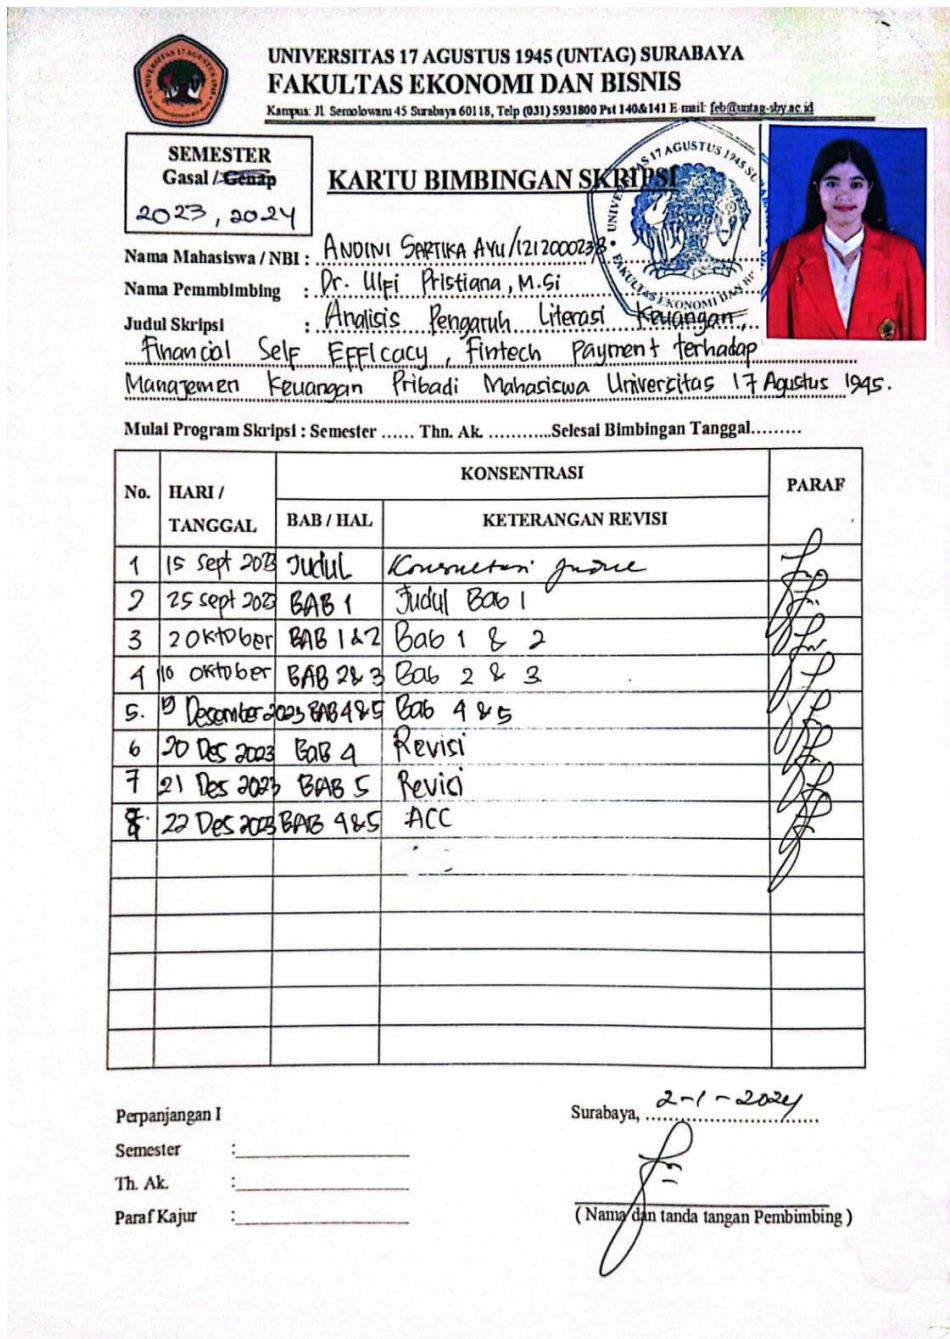 UNIVERSITAS 17 AGUSTUS 1945 (UNTAG) SURABAYA
FAKULTAS EKONOMI DAN BISNIS
Kampus: Jl. Semolowaru 45 Surabaya 60118, Telp (031) 5931800 Pst 140&141 E-mail: feb@untag-sby.ac.id
SEMESTER
Gasal / Genap
2023, 2024
KARTU BIMBINGAN SKRIPSI
Nama Mahasiswa / NBI : ANDINI SARTIKA AYU/1212000238
Nama Pemmbimbing : Dr. Ulfi Pristiana, M.Si
Judul Skripsi : Analisis Pengaruh Literasi Keuangan,
Financial Self Efficacy, Fintech Payment terhadap
Manajemen Keuangan Pribadi Mahasiswa Universitas 17 Agustus 1945.
Mulai Program Skripsi : Semester ...... Thn. Ak. ...........Selesai Bimbingan Tanggal.........
No. HARI / TANGGAL KONSENTRASI PARAF
BAB / HAL KETERANGAN REVISI
1 15 Sept 2023 Judul Konsultasi Judul
2 25 sept 2023 BAB 1 Judul Bab 1
3 2 Oktober BAB 1 & 2 Bab 1 & 2
4 16 Oktober BAB 2 & 3 Bab 2 & 3
5. Desember 2023 BAB 4 & 5 Bab 4 & 5
6 20 Des 2023 BaB 4 Revisi
7 21 Des 2023 BAB 5 Revisi
8. 22 Des 2023 BAB 4 & 5 ACC
Perpanjangan I
Semester :
Th. Ak. :
Paraf Kajur :
Surabaya, 2-1-2024
( Nama dan tanda tangan Pembimbing )